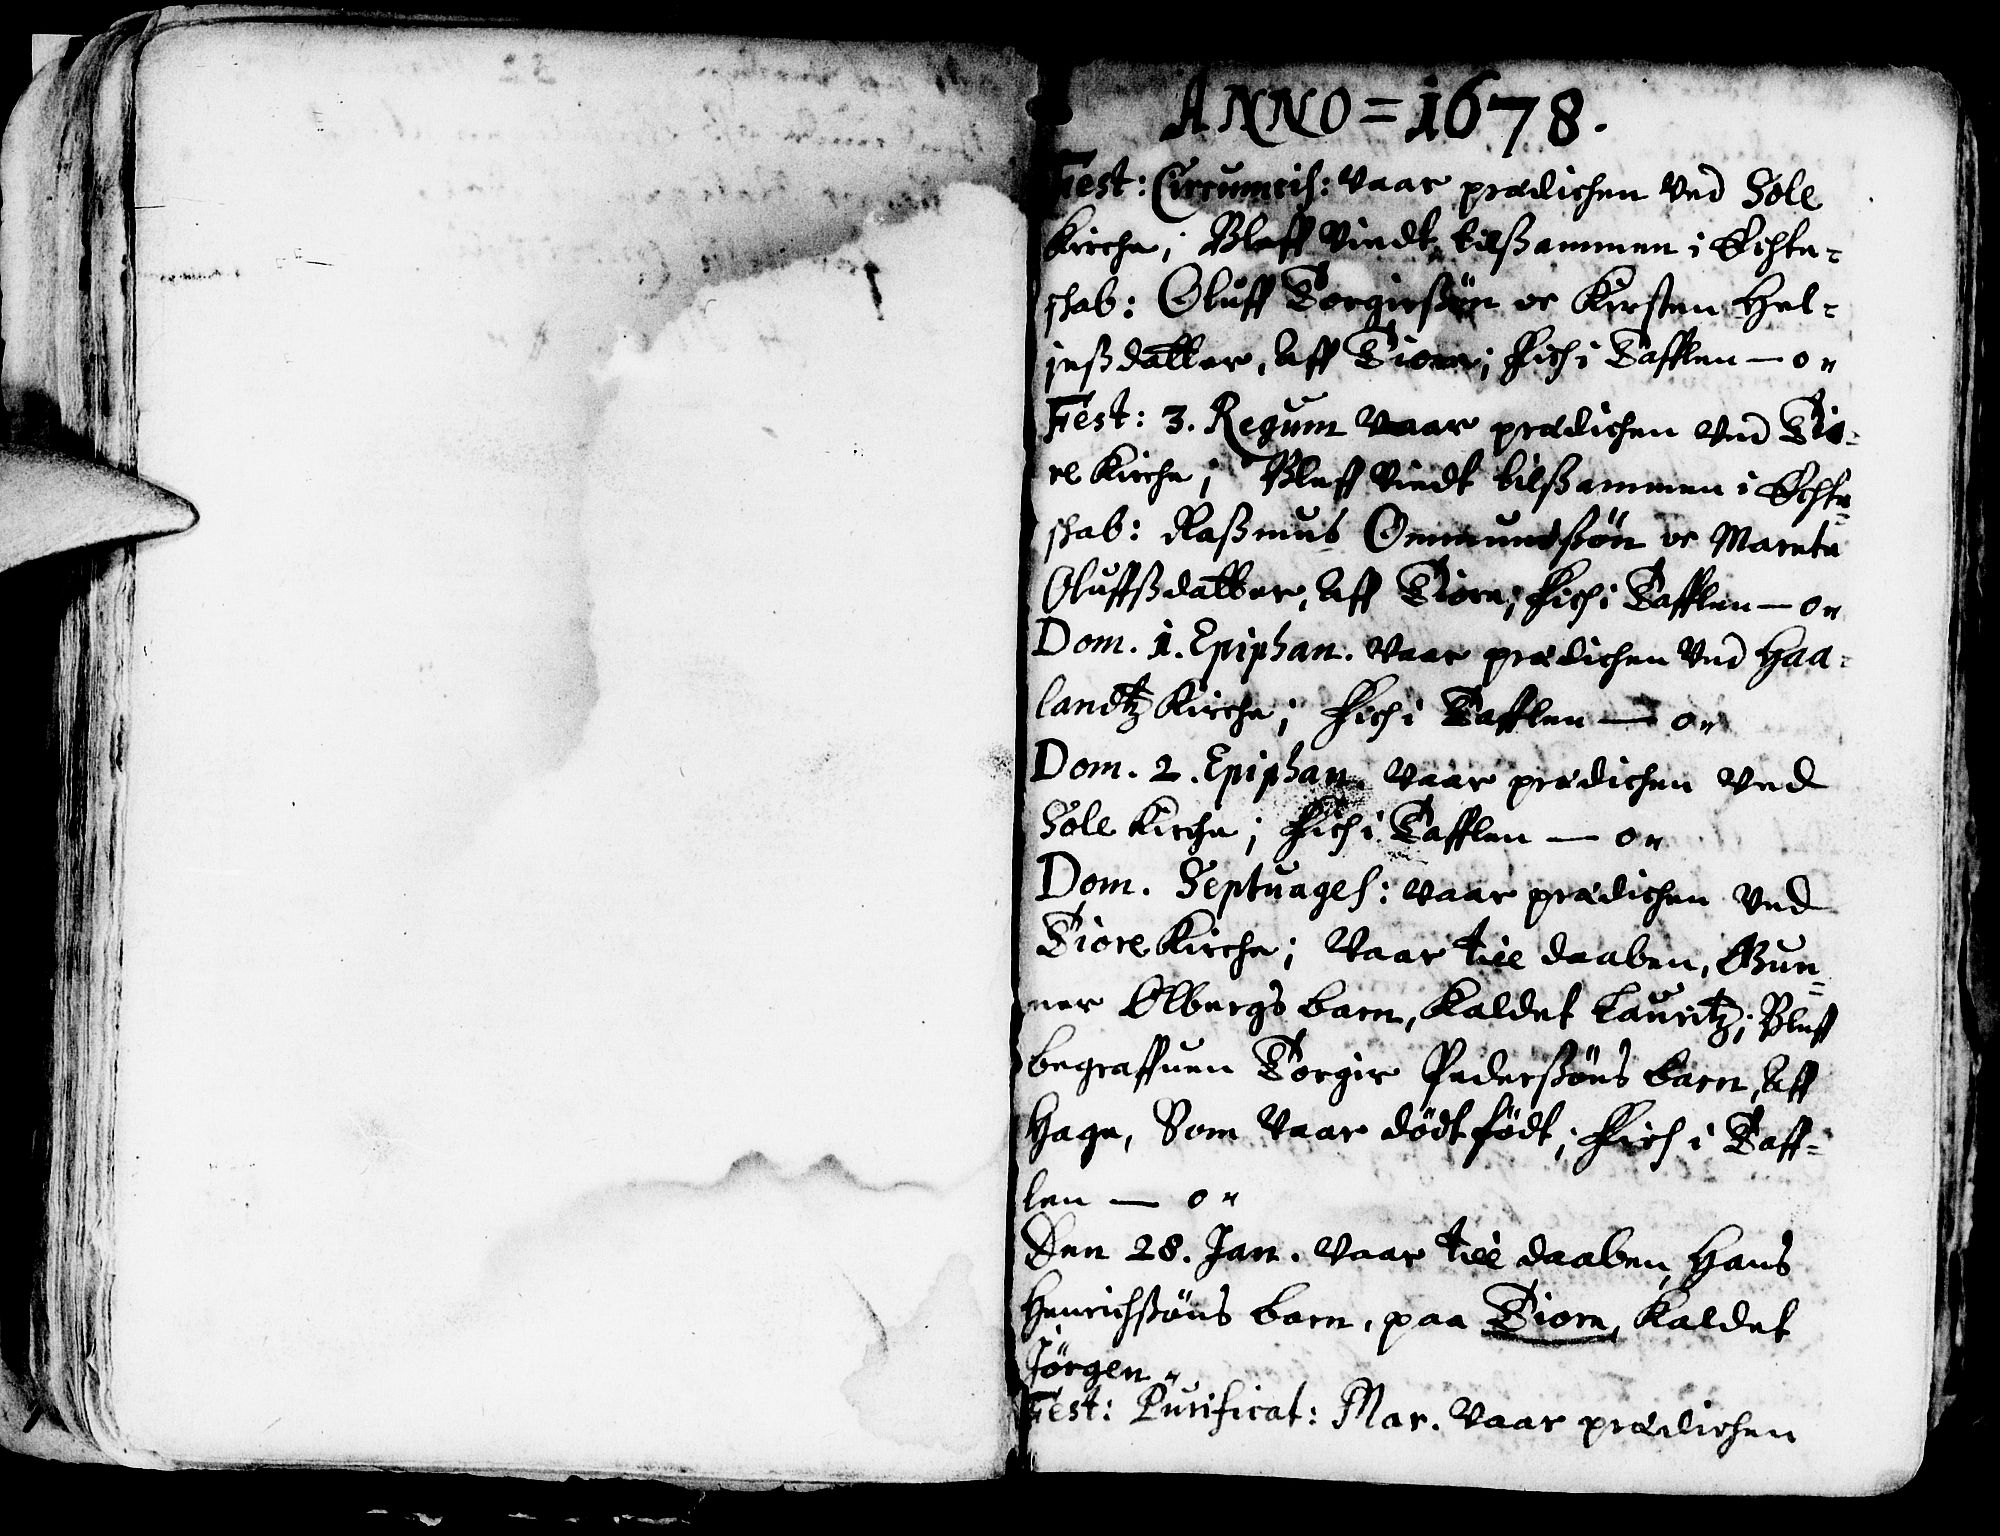 ANNO = 1678.
Fest: Circumcis: vaar prædichen ved Sole
Kirche; Bleff viedt tilßammen i Echte=
schab: Oluff Torgierßön oc Kirsten Hel=
jeßdatter, aff Tiore; Fich i Tafflen — 0"
Fest: 3. Regum vaar prædichen ved Tio=
re Kirche; Bleff viedt tilßammen i Echte=
schab: Raßmus Ommundßön oc Marete
Oluffßdatter, aff Tiore; Fich i Tafflen — 0"
Dom. 1. Epiphan. vaar prædichen ved Haa=
landtz Kirche; Fich i Tafflen — 0"
Dom. 2. Epiphan. vaar prædichen ved
Sole Kirche; Fich i Tafflen — 0"
Dom. Septuages: vaar prædichen ved
Tiore Kirche; vaar till daaben, Gun=
ner Ølbergs barn, kaldet Lauritz; Bleff
begraffuen Torgir Pederßöns barn, aff
Hage, Som vaar dödtfödt; Fich i Taff=
len — 0"
Den 28. Jan. vaar till daaben, Hans
Henrichßöns barn, paa Tiore, kaldet
Jörgen "
Fest: Purificat: Mar. vaar prædichen